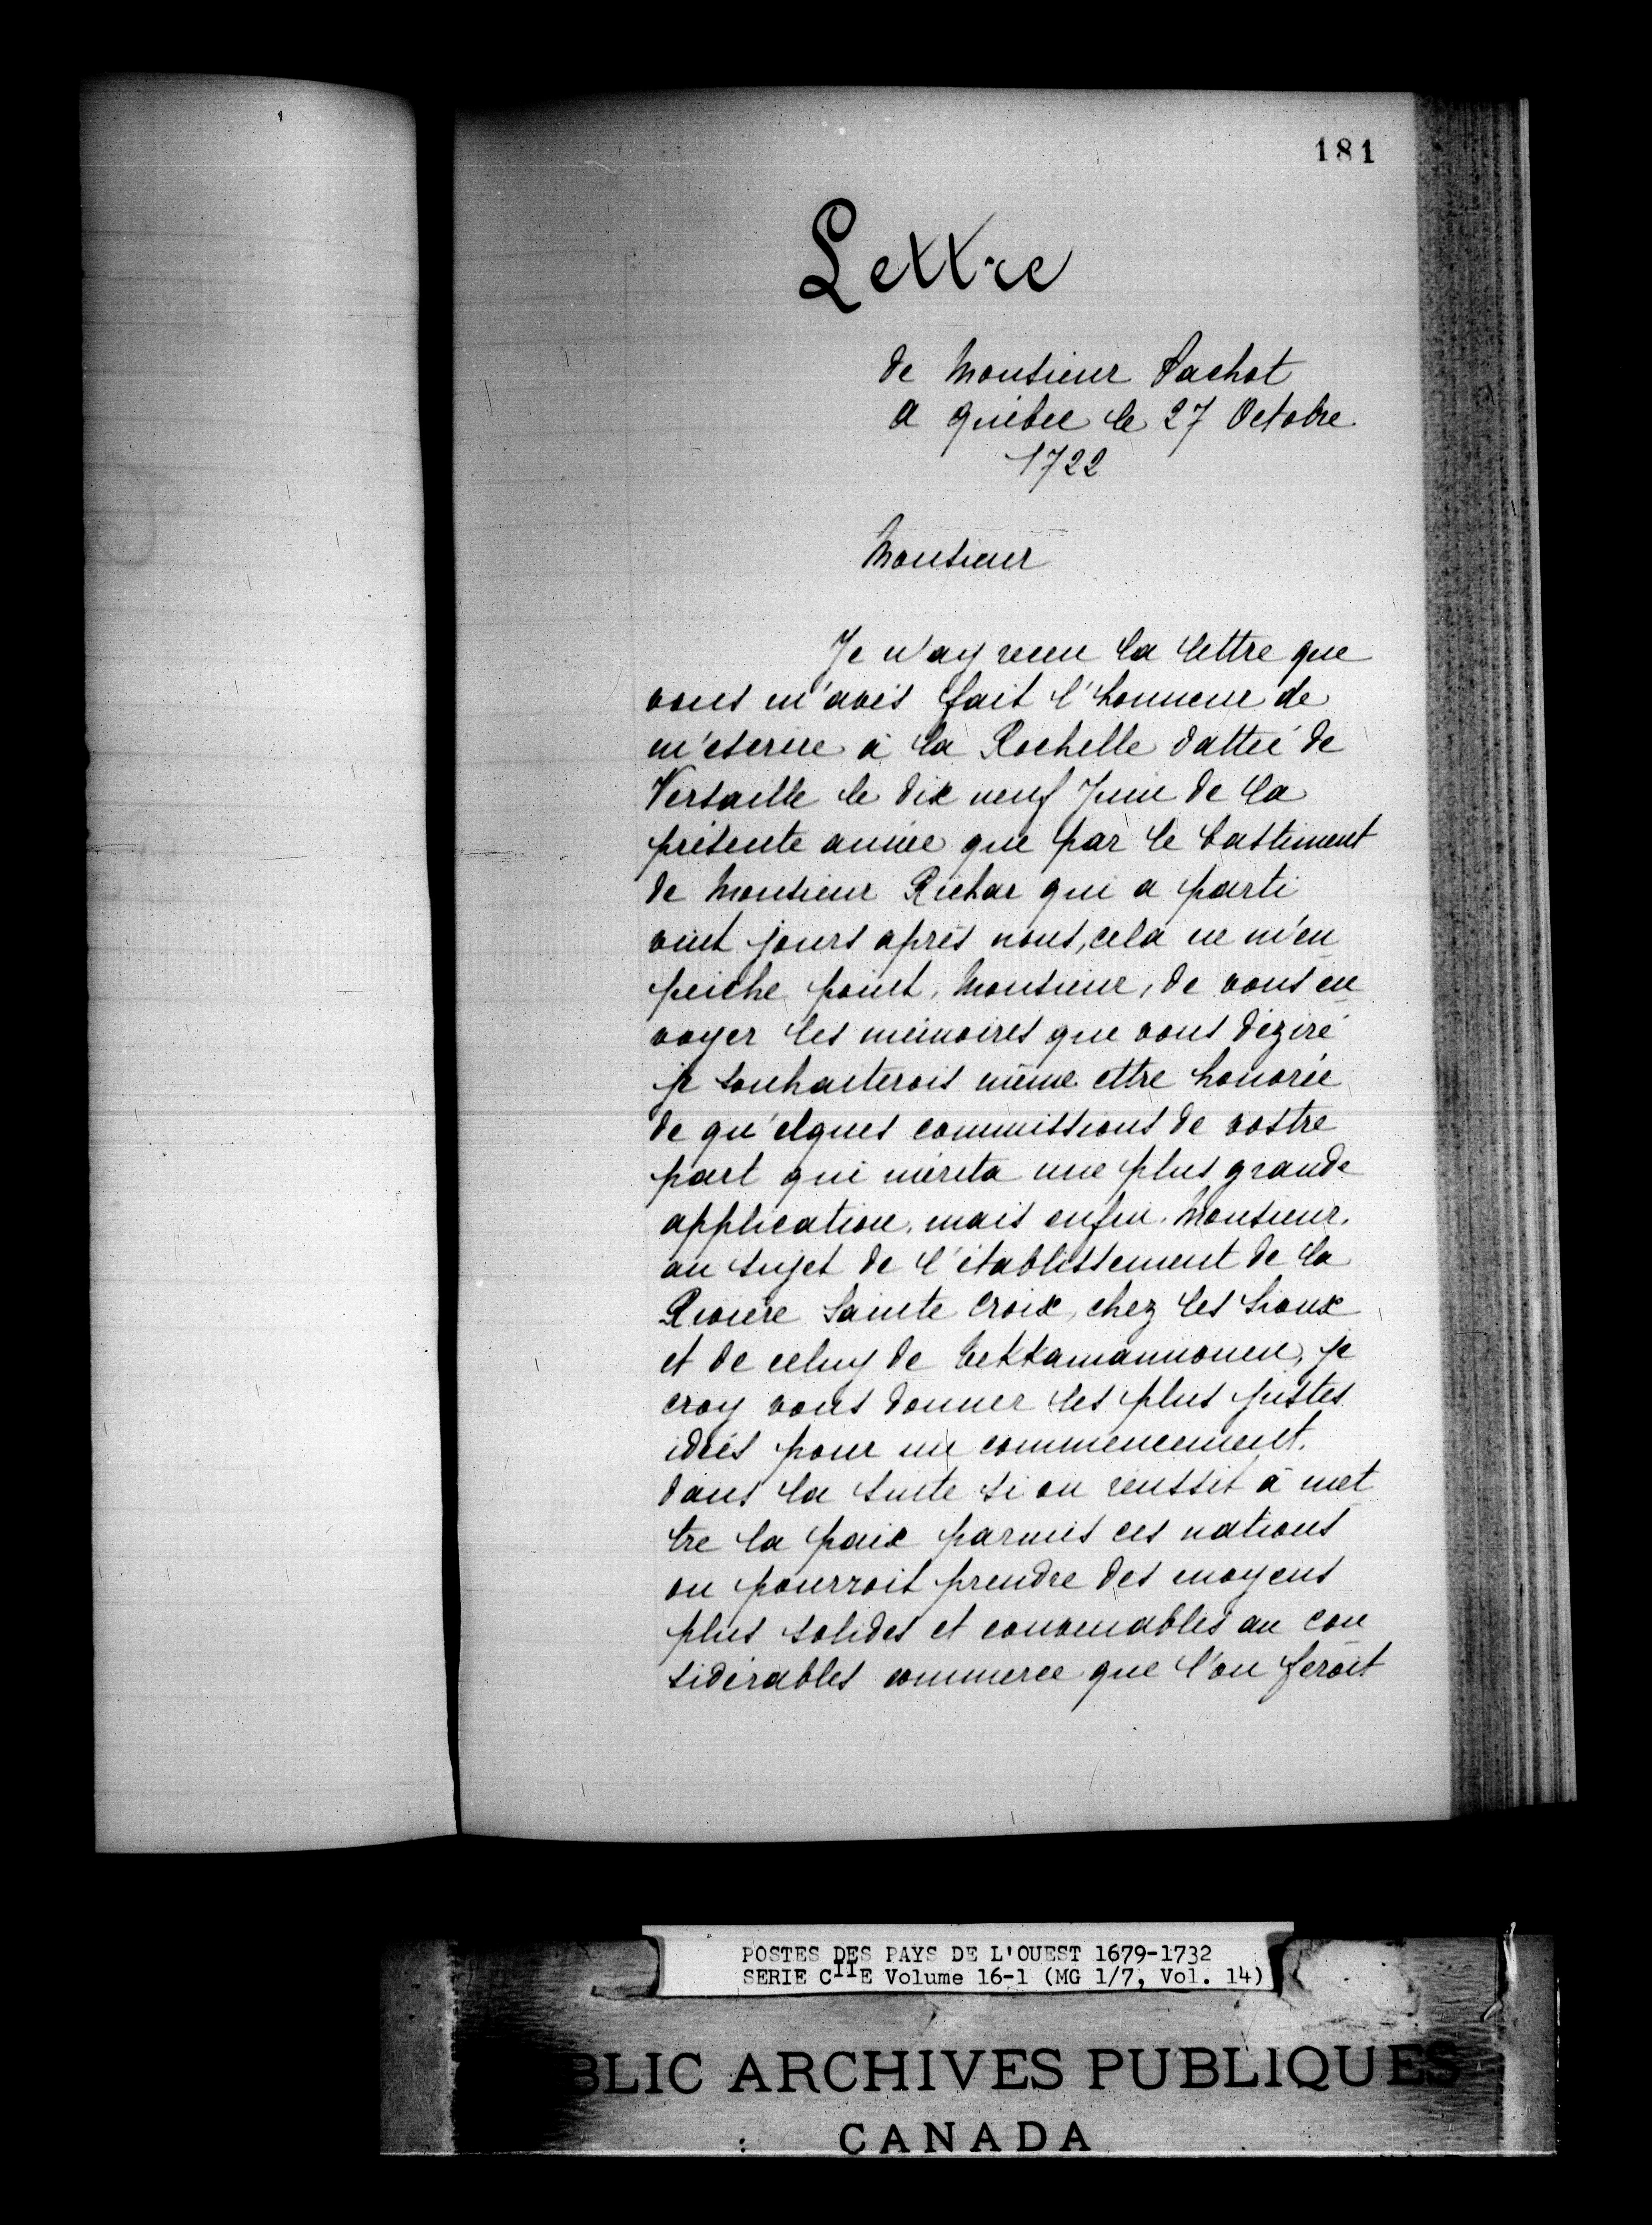 181
Lettre
de Monsieur Pachot
a Québec le 27 Octobre
1722
Monsieur
Je n'ay receu la lettre que
vous m'avés fait l'honneur de
m'escrire à la Rochelle dattée de
Versaille le dix neuf Juin de la
présente année que par le bastiment
de Monsieur Richar qui a parti
vint jours après nous, cela ne m'en
peiche point, Monsieur, de vous en
voyer les mémoires que vous déziré
je souhaiterois même ettre honorée
de qu'elques commissions de vostre
part qui mérita une plus grande
application, mais enfin, Monsieur,
au sujet de l'établissement de la
Rivière Sainte Croix, chez les Sioux
et de celuy de , je
croy vous donner les plus justes
idéés pour un commencement.
dans la suite si on réussit à met
tre la paix parmis ces nations
on pourroit prendre des moyens
plus solides et convenables au con
sidérables commerce que l'on feroit
POSTES DES PAYS DE L'OUEST 1679-1732
SERIE CIIE Volume 16-1 (MG 1/7, Vol. 14)
BLIC ARCHIVES PUBLIQUES
CANADA